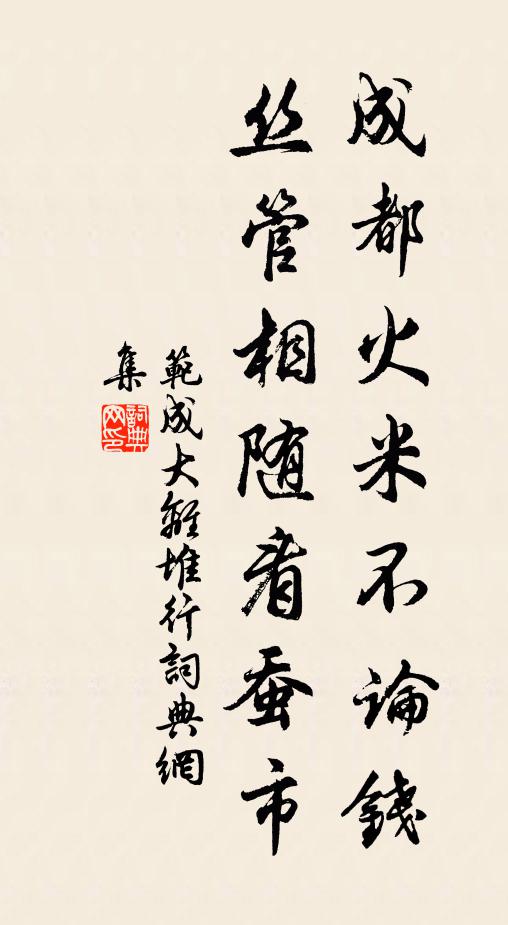 成都火米不论錢
丝管相随看蚕市
範成大離堆行詞典網
集
詞典网印